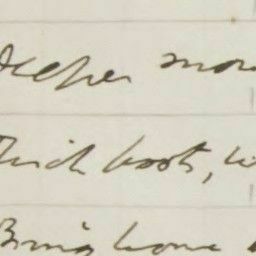 deeper mor
Thick boots, w
Bring home